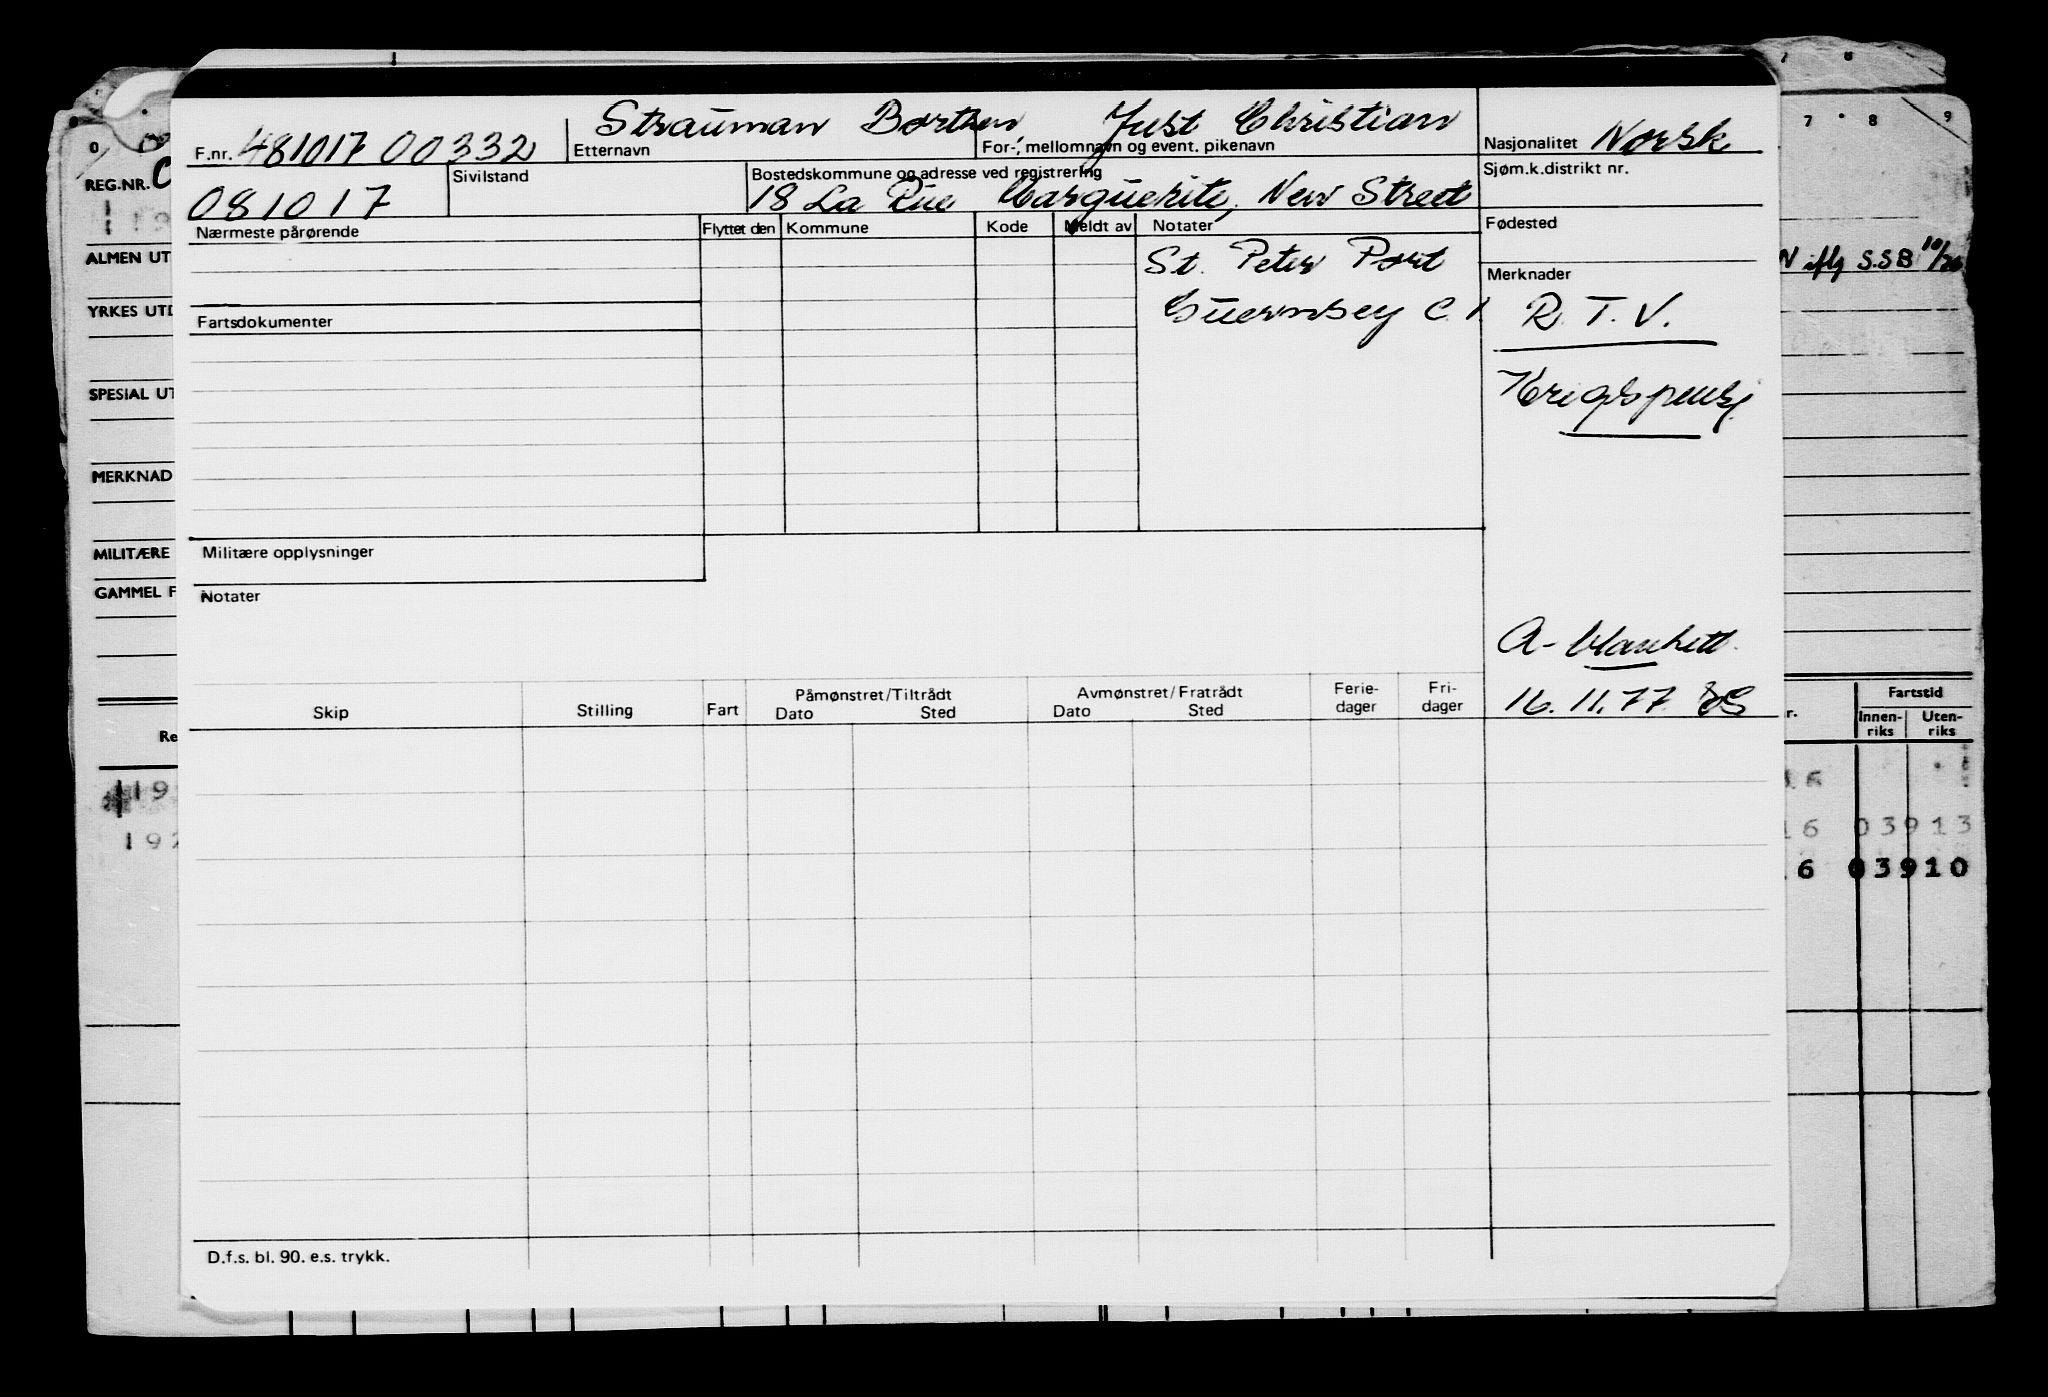 7 8
0 7 8 9
Strauman Borthen, Just Christian
F.nr. 481017 00332 Etternavn For-, mellomnavn og event. pikenavn Nasjonalitet Norsk
REG.NR. Sivilstand Bostedskommune og adresse ved registrering Sjøm.k.distrikt nr.
081017 18 La Rue Marguerite, New Street
Nærmeste pårørende Flyttet den Kommune Kode Meldt av Notater Fødested
ALMEN UT St. Peter Port N iflg S.S.B
Merknader
YRKES UTD Guernsey C.I. R.T.V.
Fartsdokumenter
SPESIAL UT Krigspensj.
MERKNAD
MILITÆRE Militære opplysninger
GAMMEL F Notater
A-blankett
Skip Stilling Fart Påmønstret/Tiltrådt Avmønstret/Fratrådt Ferie-dager Fri-dager 16.11.77 Fartstid
Dato Sted Dato Sted r. Innen-riks Uten-riks
Re
19
192 16 03913
16 03910
D.f.s. bl. 90. e.s. trykk.